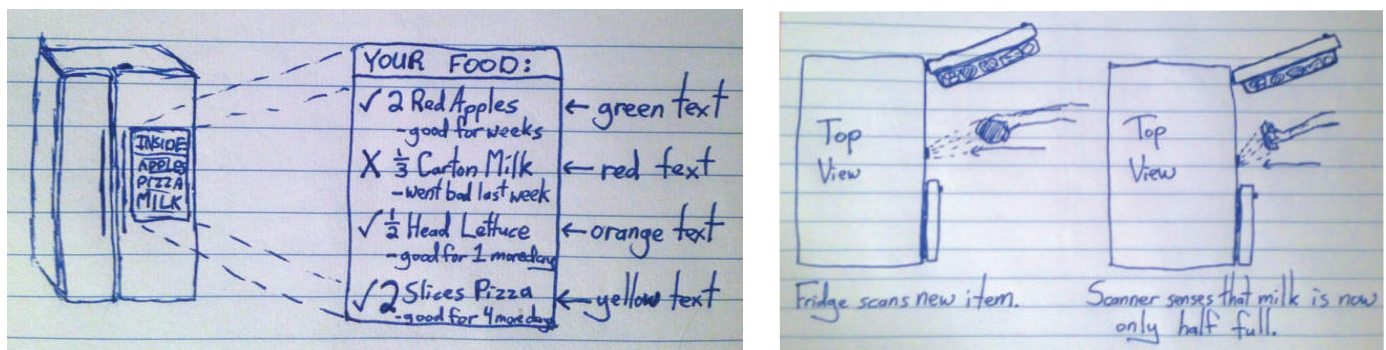 YOUR FOOD:
✓ 2 Red Apples
-good for weeks
← green text
X 1/3 Carton Milk
-went bad last week
← red text
✓ 1/2 Head Lettuce
-good for 1 more day
← orange text
✓ 2 Slices Pizza
-good for 4 more days
← yellow text
INSIDE
APPLES
PIZZA
MILK
Top
View
Fridge scans new item.
Top
View
Scanner senses that milk is now
only half full.